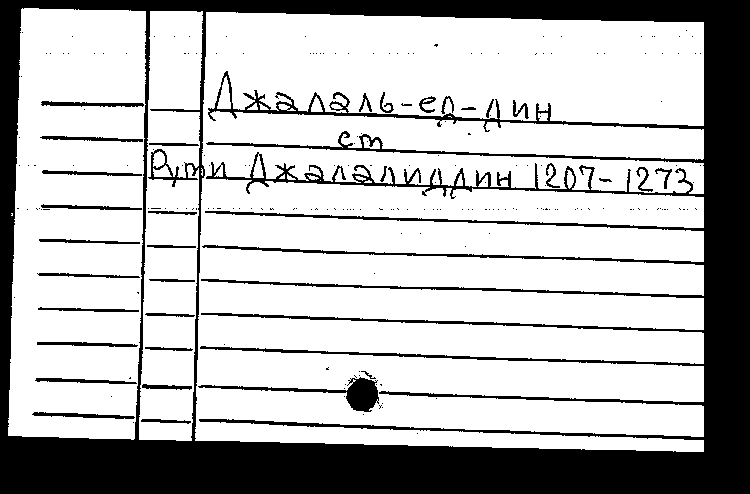 Джалаль-ед-дин
ст
Руми Джалалиддин 1207-1273